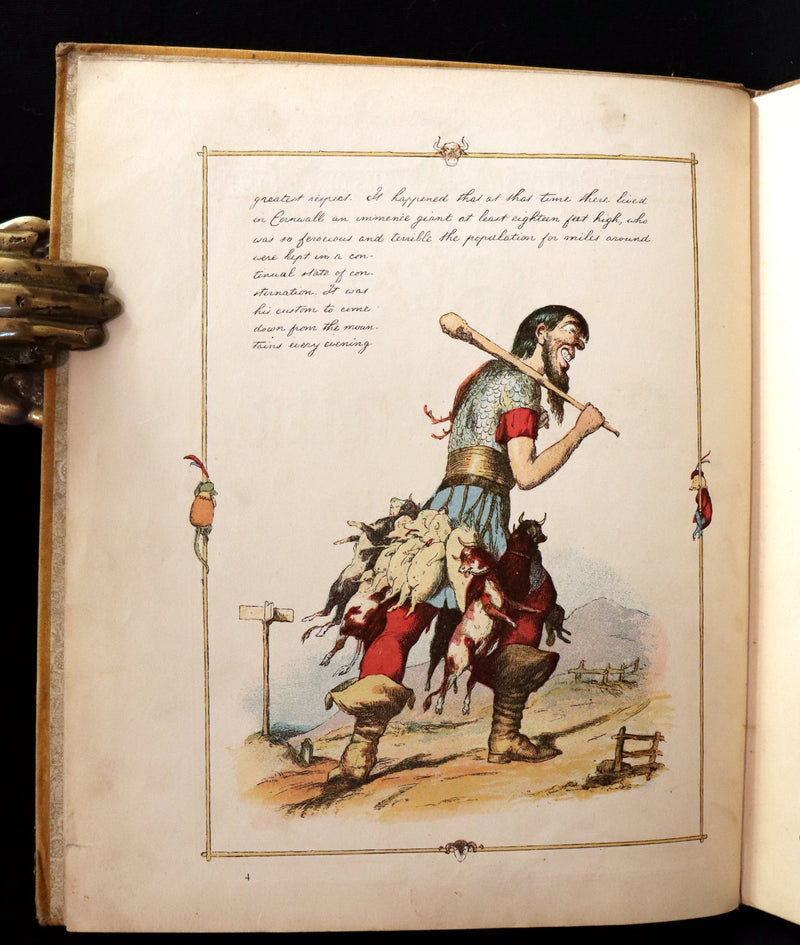 greatest respect. It happened that at that time there lived
in Cornwall an immense giant at least eighteen feet high, who
was so ferocious and terrible the population for miles around
were kept in a con-
tinual state of con-
sternation. It was
his custom to come
down from the moun-
tains every evening
4